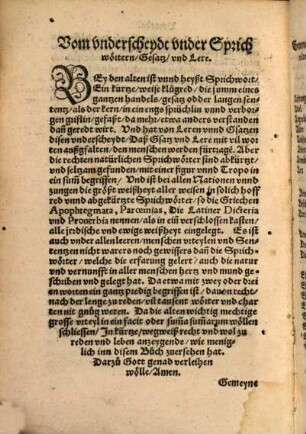 Vom vnderscheydt vnder Sprich
wörtern/ Gesatz/ vnd Lere.
BEy den alten ist vnnd heyßt Sprichwort/
Ein kürtze/ weise klůgred/ die summ eines
gantzen handels/ gesatz oder langen sen-
tentz/ als der kern/ in ein eng sprüchlin vnd verbor-
gen grüßlin/ gefaßt/ da mehr/ etwa anders verstanden
dañ geredt wirt. Vnd hat von Leren vnnd Gsatzen
disen vnderscheydt/ Daß Gsatz vnd Lere mit vil wor-
ten außgfalten/ den menschen werden fürtragē. Aber
die rechten natürlichen Sprichwörter sind abkürtzt/
vnd seltzam gefunden/ mit einer figur vnd Tropo in
ein sum̃ begriffen/ Vnd ist bei allen Nationen vnnd
zungen die größt weißheyt aller weisen in solich hoff
red vnnd abgekürtzte Sprichwörter/ so die Griechen
Apophtegmata, Parœmias, Die Latiner Dicteria
vnd Prouerbia nennen/ als in eiñ verschloßen kasten/
alle jrdische vnd ewige weißheyt eingelegt. Es ist
auch vnder allen leeren/ menschen vrteylen vnd Sen-
tentzen nicht warers noch gewissers dañ die Sprich-
wörter/ welche die erfarung gelert/ auch die natur
vnd vernunfft in aller menschen hertz vnd mund ge-
schriben vnd gelegt hat. Da etwa mit zwey oder drei
en worten ein gantz predig begriffen ist/ dauon recht/
nach der lenge zu reden/ vil tausent wörter vnd char
ten nit gnůg weren. Da die alten wichtig mechtige
grosse vrteyl in ein facit oder sum̃a sum̃arum wöllen
schliessen/ In kürtze/ wegweiß recht vnd wol zu
reden vnd leben anzeygende/ wie menig-
lich inn disem Bůch zuersehen hat.
Darzů Gott genad verleihen
wölle/ Amen.
Gemeyne